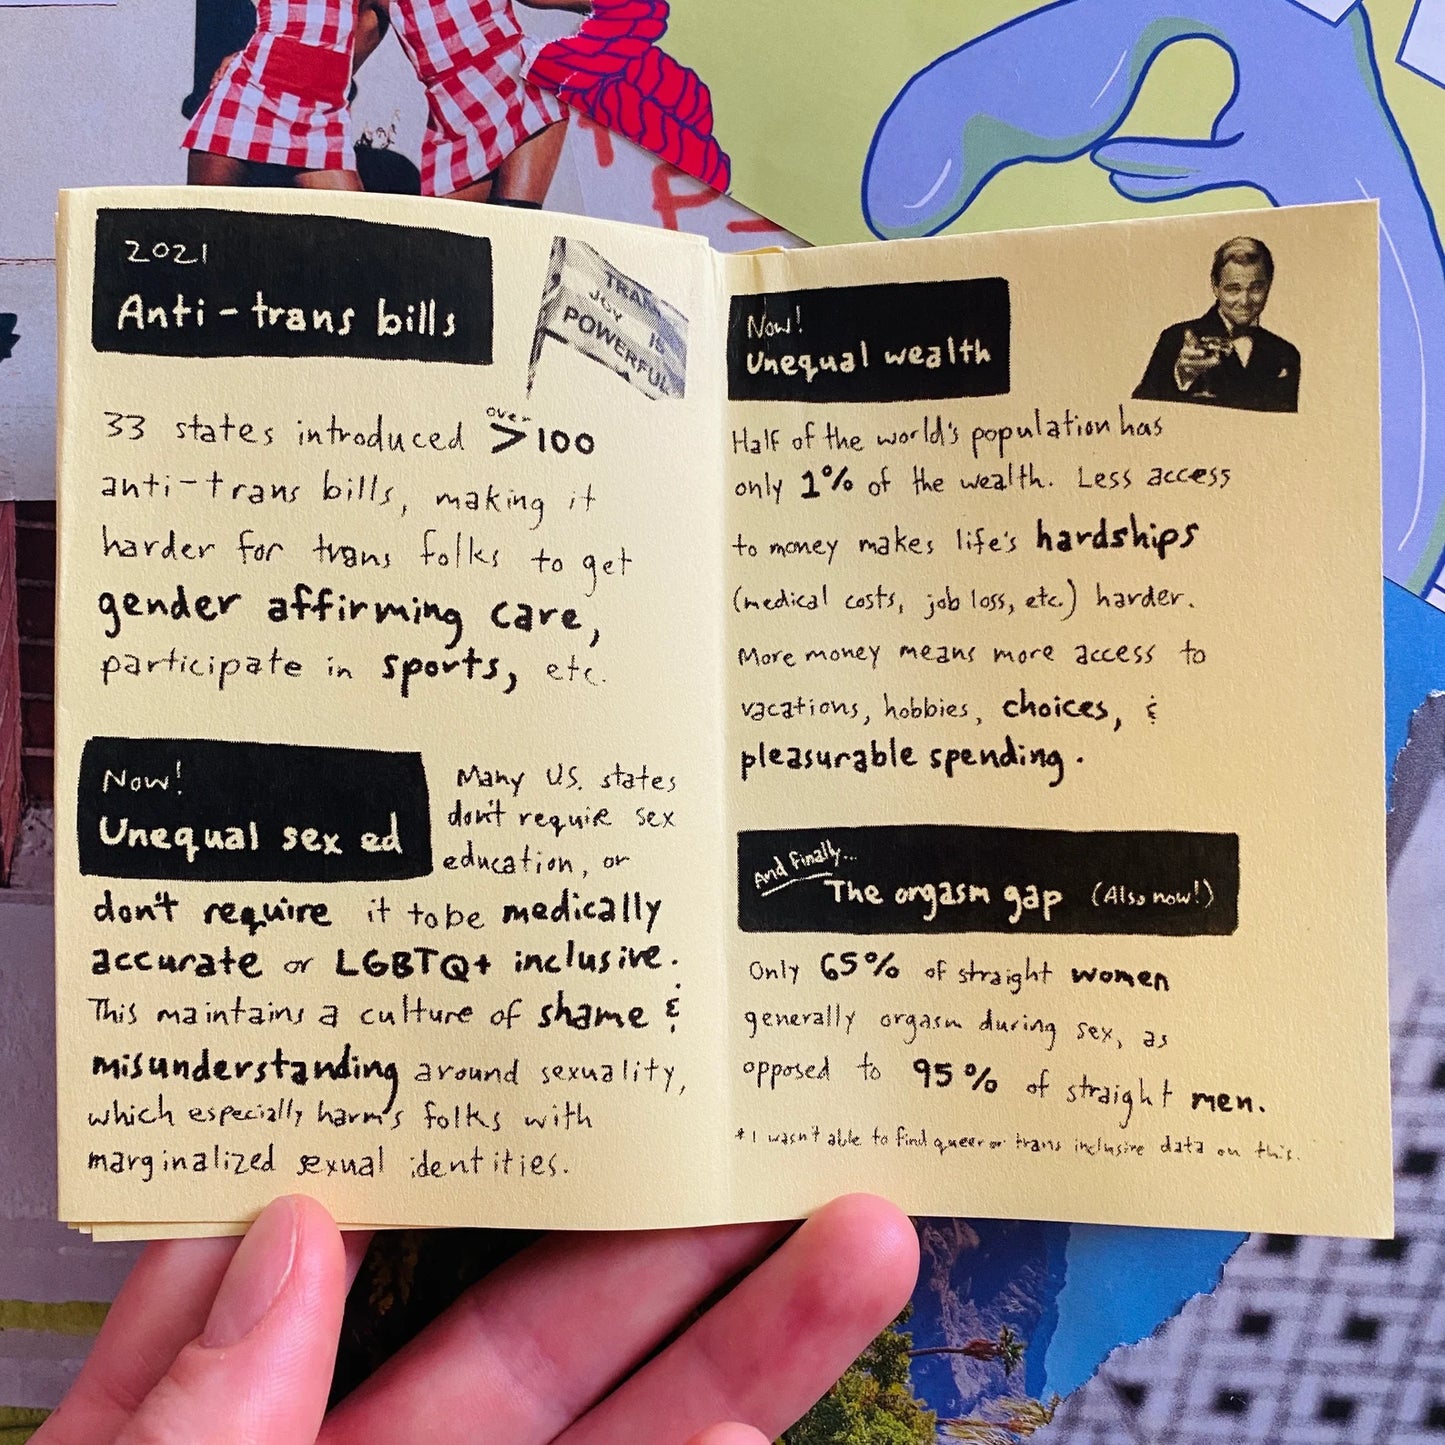 2021
Anti-trans bills
TRANS
JOY IS
POWERFUL
33 states introduced over >100
anti-trans bills, making it
harder for trans folks to get
gender affirming care,
participate in sports, etc.
Now!
Unequal sex ed
Many U.S. states
don't require sex
education, or
don't require it to be medically
accurate or LGBTQ+ inclusive.
This maintains a culture of shame &
misunderstanding around sexuality,
which especially harms folks with
marginalized sexual identities.
Now!
Unequal wealth
Half of the world's population has
only 1% of the wealth. Less access
to money makes life's hardships
(medical costs, job loss, etc.) harder.
More money means more access to
vacations, hobbies, choices, &
pleasurable spending.
And finally...
The orgasm gap (Also now!)
Only 65% of straight women
generally orgasm during sex, as
opposed to 95% of straight men.
*I wasn't able to find queer or trans inclusive data on this.